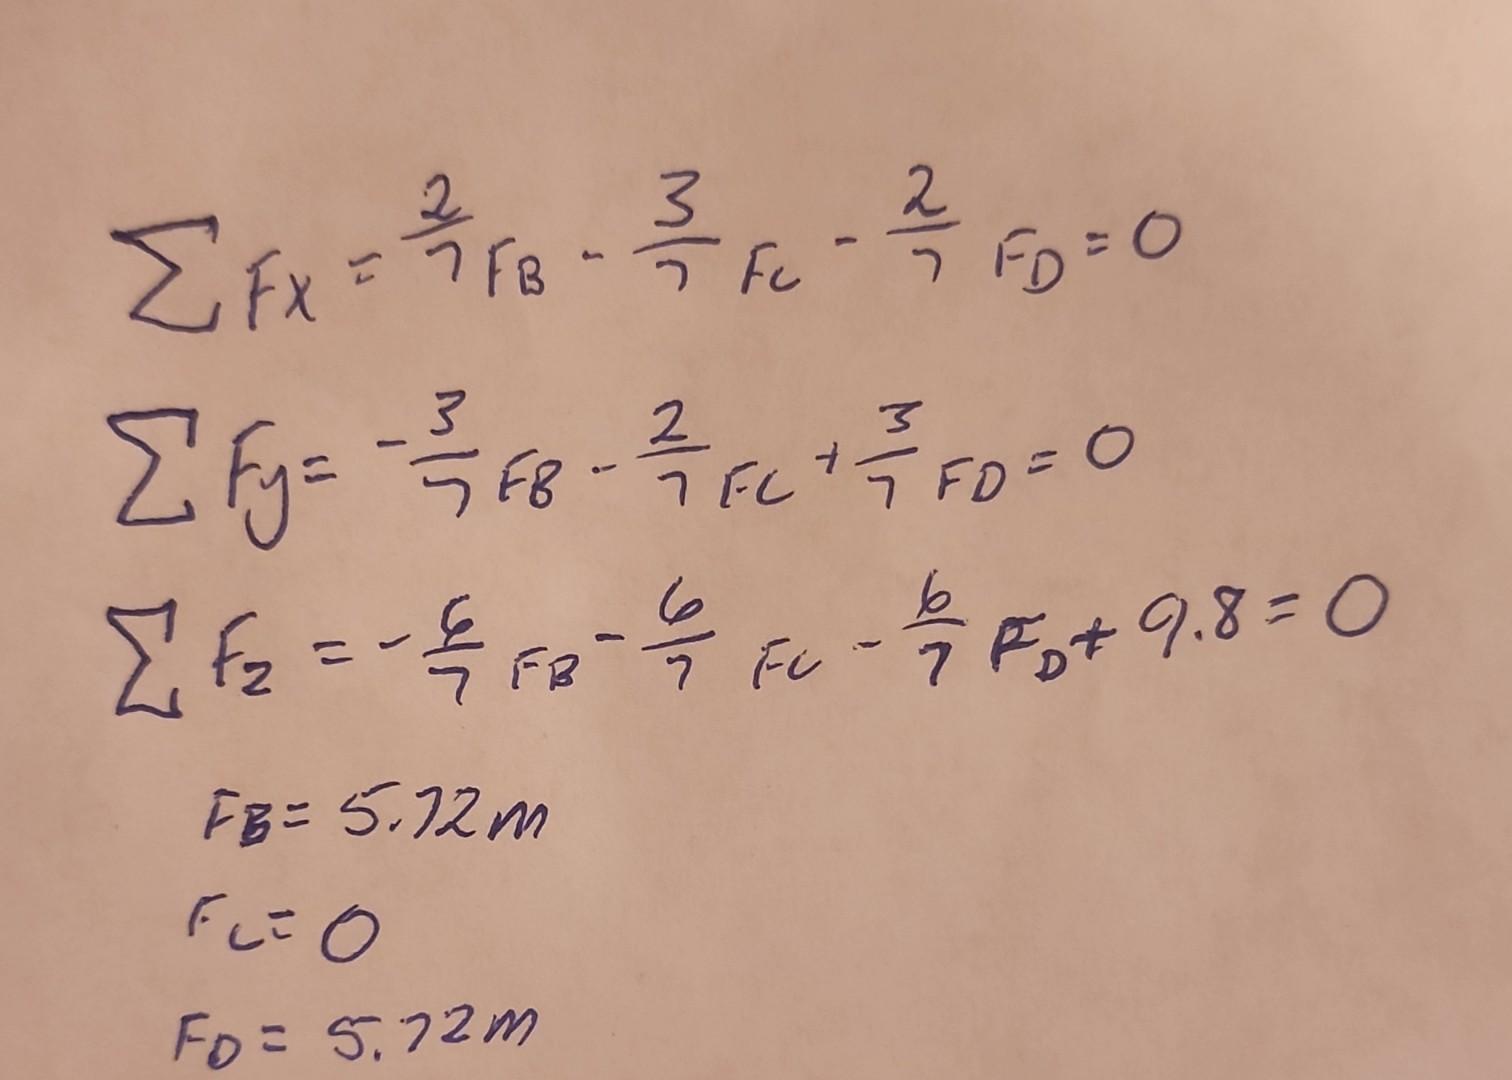 ∑ Fx = 2/7 FB - 3/7 Fc - 2/7 FD = 0
∑ Fy = -3/7 FB - 2/7 FC + 3/7 FD = 0
∑ Fz = -6/7 FB - 6/7 Fc - 6/7 FD + 9.8 = 0
FB = 5.72m
Fc = 0
FD = 5.72m